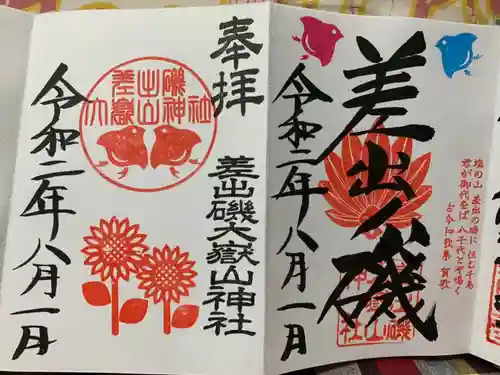 奉拝
差出磯大嶽山神社
差出磯
大嶽山神社
令和二年八月一日
差出磯
塩の山 差出の磯に 住む千鳥
君が御代をば 八千代とぞ鳴く
古今和歌集 賀歌
令和二年八月一日